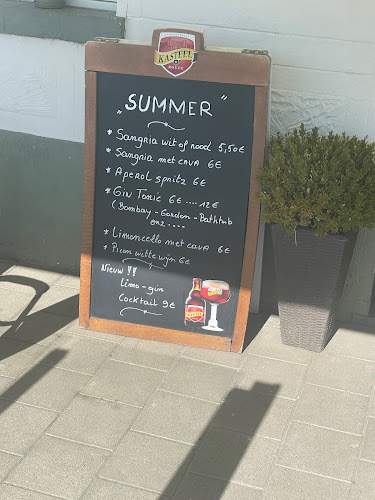 KASTEEL
ROUGE
„SUMMER"
* Sangria wit of rood 5,50€
* Sangria met cava 6€
* Aperol spritz 6€
* Gin Tonic 6€ .... 12€
( Bombay - Gordon - Bathtub
enz ....
* Limoncello met cava 6€
* Picon witte wijn 6€
Nieuw !!
Limo - gin
Cocktail 9€